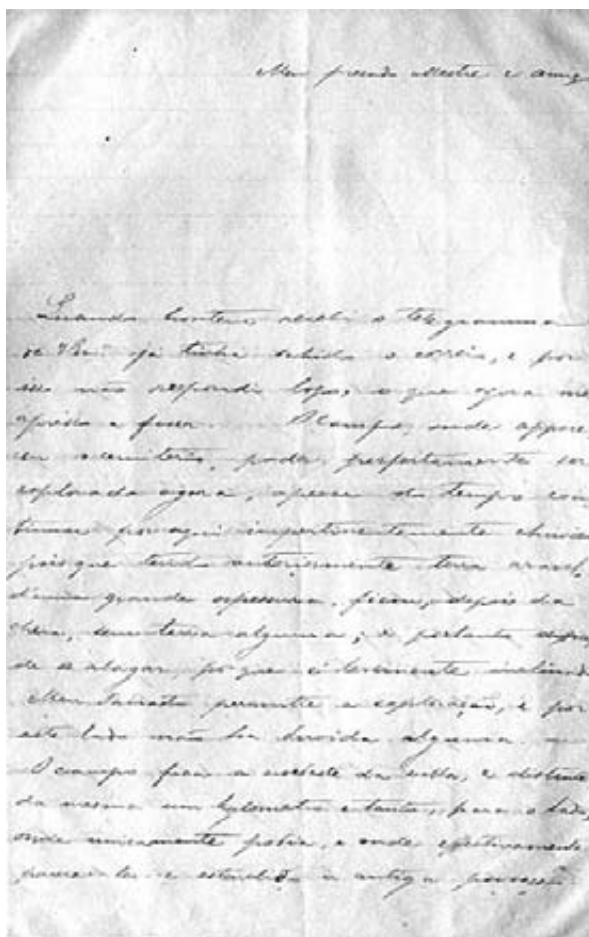 Meu presado Mestre e amig
Quando hontem recebi o telegramma
de V. Ex.ª já tinha sahido o correio, e por
isso não respondi logo, o que agora me
apresso a fazer O campo, onde appare
ceu o cemiterio, pode perfeitamente ser
explorado agora, apesar do tempo con
tinuar por aqui impertinentemente chuvoso
pois que tendo anteriormente terra aravel,
d'uma grande espessura, ficou, depois da
cheia, sem terra alguma; e portanto
de se alagar, porque é levemente inclinado
Meu cunhado permitte a exploração, e por
este lado não ha duvida alguma
O campo fica a nordeste da villa, e distante
da mesma um kylometro e tanto, para o lado,
onde unicamente podia, e onde effectivamente
parece ter-se estendido a antiga povoação